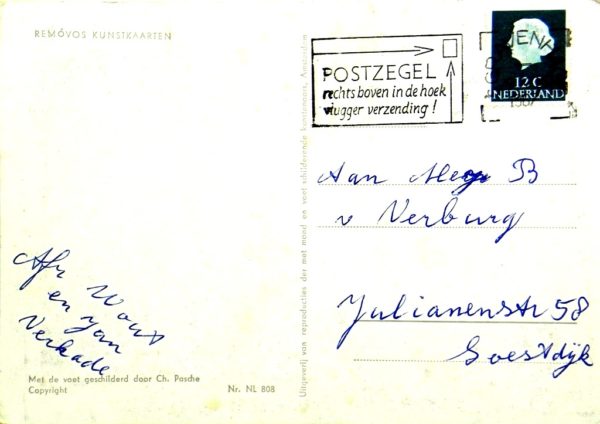 REMÓVOS KUNSTKAARTEN
POSTZEGEL
rechts boven in de hoek
vlugger verzending!
12 C
NEDERLAND
Aan
B
v Verburg
Julianenstr 58
Soestdijk
Afz Wout
en Jan
Verkade
Met de voet geschilderd door Ch. Pasche
Copyright
Nr. NL 808
Uitgeverij van reproducties der met mond en voet schilderende kunstenaars, Amsterdam